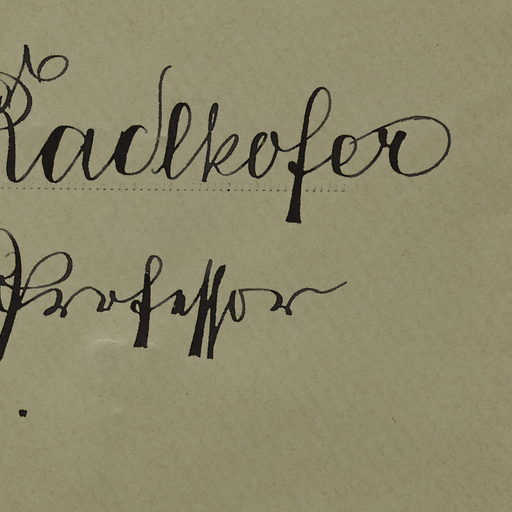 Radlkofer
Professor
.